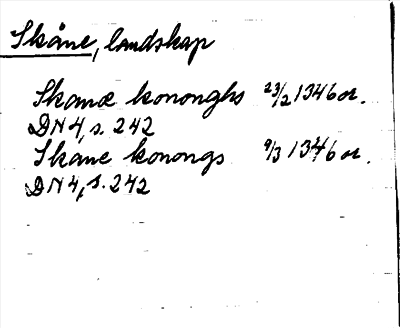 Skåne, landskap
Skanæ kononghs 23/2 1346 or.
DN 4, s. 242
Skane konongs 9/3 1346 or.
DN 4, s. 242